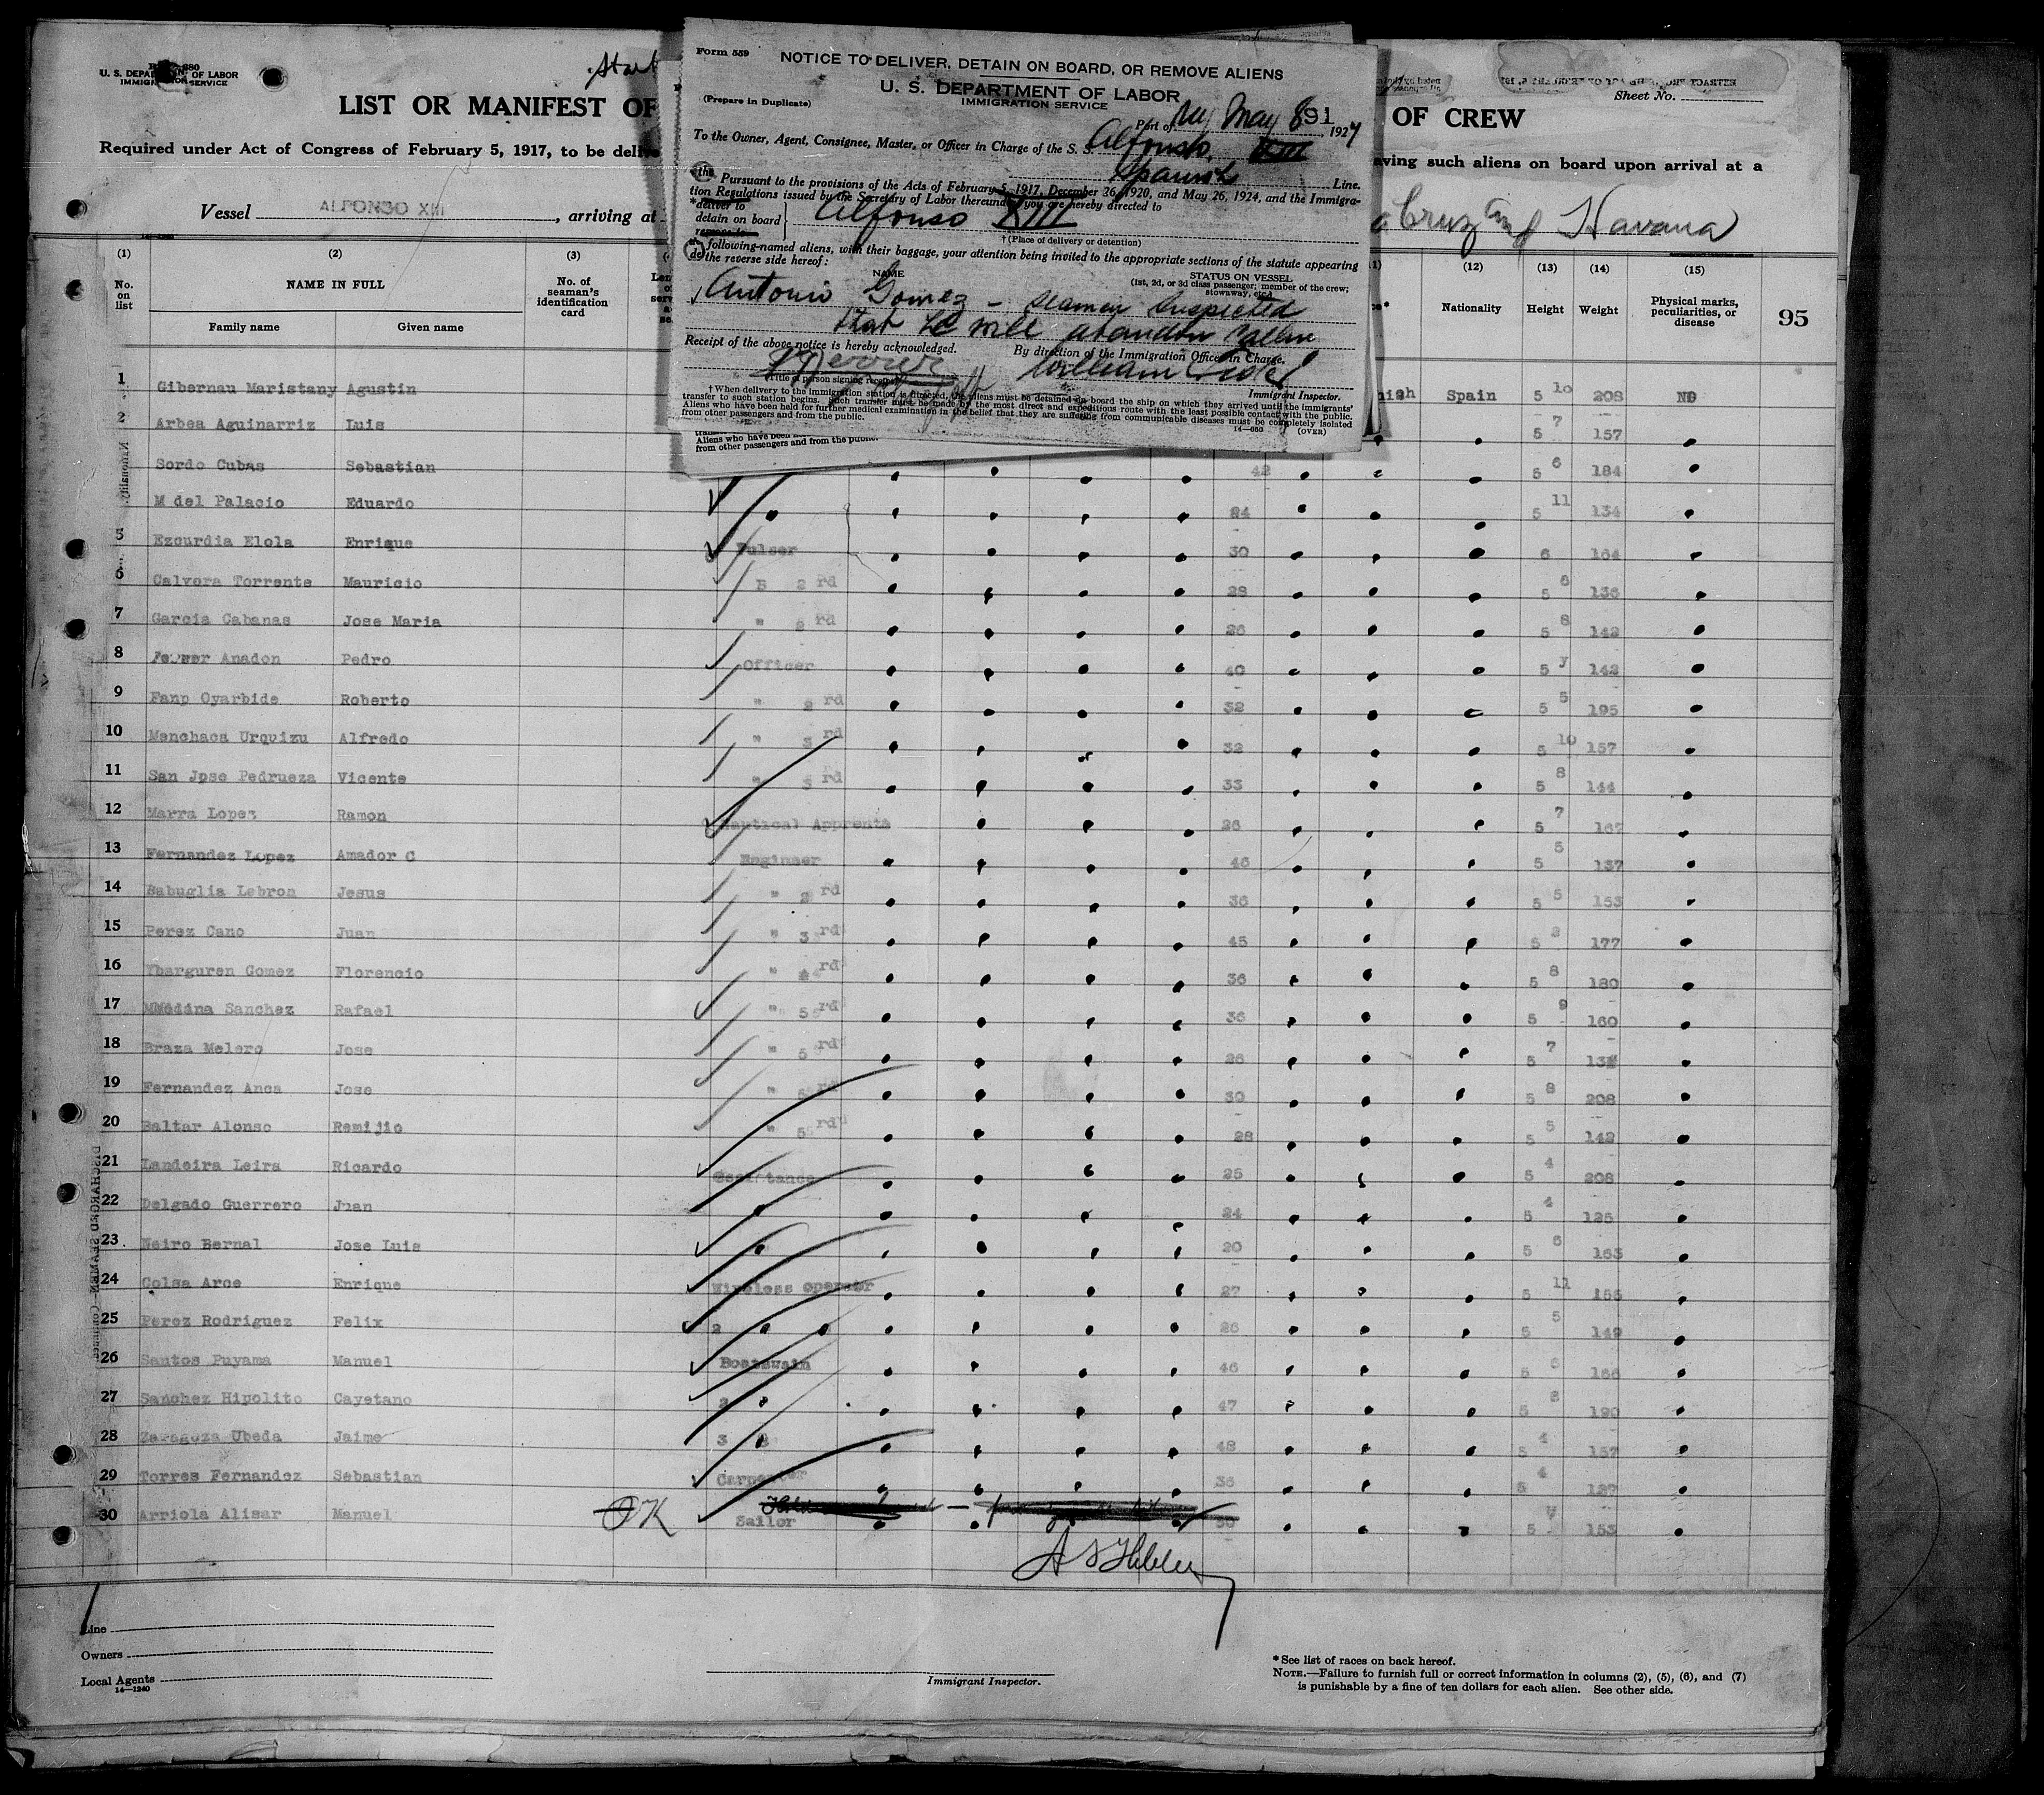 U. S. DEPARTMENT OF LABOR
IMMIGRATION SERVICE
Start
LIST OR MANIFEST OF
OF CREW
Sheet No.
Required under Act of Congress of February 5, 1917, to be
aving such aliens on board upon arrival at a
Vessel ALFONSO XIII, arriving at
Cruz and Havana
Form 559
NOTICE TO DELIVER, DETAIN ON BOARD, OR REMOVE ALIENS
U. S. DEPARTMENT OF LABOR
IMMIGRATION SERVICE
(Prepare in Duplicate)
Port of NY May 8 1927
91
To the Owner, Agent, Consignee, Master, or Officer in Charge of the S. S. Alfonso XIII
Spanish Line.
Pursuant to the provisions of the Acts of February 5, 1917, December 26, 1920, and May 26, 1924, and the Immigra-
tion Regulations issued by the Secretary of Labor thereunder, you are hereby directed to
*deliver to
detain on board
remove to
Alfonso XIII
† (Place of delivery or detention)
the following-named aliens, with their baggage, your attention being invited to the appropriate sections of the statute appearing
on the reverse side hereof:
NAME
STATUS ON VESSEL
(1st, 2d, or 3d class passenger; member of the crew;
stowaway, etc.)
Antonio Gomez - seaman suspected
that he will abandon
Receipt of the above notice is hereby acknowledged.
By direction of the Immigration Officer in Charge.
William
(Title of person signing receipt)
Immigrant Inspector.
† When delivery to the immigration station is directed, the aliens must be detained on board the ship on which they arrived until the immigrants'
transfer to such station begins. Such transfer must be made by the most direct and expeditious route with the least possible contact with the public.
Aliens who have been held for further medical examination in the belief that they are suffering from communicable diseases must be completely isolated
from other passengers and from the public.
14—660
(OVER)
Aliens who have been
from other passengers and from the public.
(1) (2) (3) (12) (13) (14) (15)
No. on list
NAME IN FULL
Family name Given name
No. of seaman's identification card
Nationality Height Weight Physical marks, peculiarities, or disease
95
1 Gibernau Maristany Agustin nish Spain 5 10 208 NO
2 Arbea Aguinarriz Luis 5 7 157
Sordo Cubas Sebastian 42 5 6 184
M del Palacio Eduardo 24 5 11 134
5 Ezcurdia Elola Enrique 30 6 164
6 Calvera Torrente Mauricio 2 rd 28 5 8 136
7 Garcia Cabanas Jose Maria " 2 rd 26 5 8 142
8 Ferrer Anadon Pedro Officer 40 5 7 142
9 Fano Oyarbide Roberto " 2 rd 32 5 5 195
10 Menchaca Urquizu Alfredo " 3 rd 32 5 10 157
11 San Jose Pedrueza Vicente " 3 rd 33 5 8 144
12 Marra Lopez Ramon Nautical Apprenta 26 5 7 167
13 Fernandez Lopez Amador C Engineer 46 5 5 137
14 Babuglia Lebron Jesus " 2 rd 36 5 5 153
15 Perez Cano Juan " 3 rd 45 5 2 177
16 Ybarguren Gomez Florencio " 4 rd 36 5 8 180
17 Medina Sanchez Rafael " 5 rd 36 5 9 160
18 Braza Melero Jose " 5 rd 26 5 7
19 Fernandez Anca Jose " rd 30 5 8 208
20 Baltar Alonso Remijio " 5 rd 28 5 5 142
21 Landeira Leira Ricardo 25 5 4 208
22 Delgado Guerrero Juan 24 5 4 125
23 Neiro Bernal Jose Luis 20 5 6 163
24 Colsa Arce Enrique Wireless operator 27 5 11 155
25 Perez Rodriguez Felix 2 26 5 5 149
26 Santos Puyama Manuel Boatswain 46 5 166
27 Sanchez Hipolito Cayetano 2 47 5 8 190
28 Zaragoza Ubeda Jaime 3 48 5 4 157
29 Torres Fernandez Sebastian Carpenter 36 5 4 127
30 Arriola Alisar Manuel OK Sailor 50 5 153
DISCHARGED SEAMEN
Line
Owners
Local Agents
14—1240
Immigrant Inspector.
* See list of races on back hereof.
NOTE.—Failure to furnish full or correct information in columns (2), (5), (6), and (7)
is punishable by a fine of ten dollars for each alien. See other side.